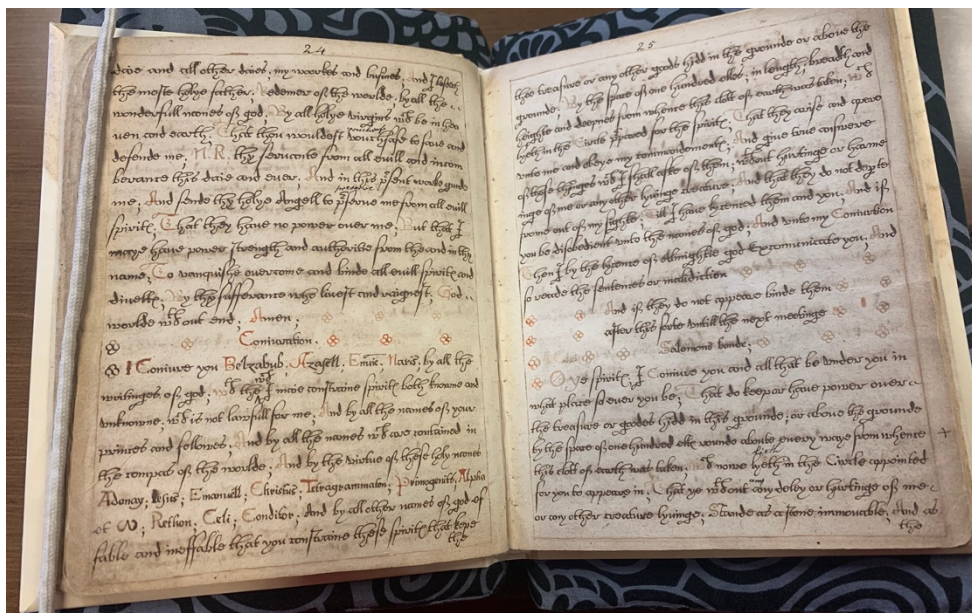 24
daie and all other daies, my workes and busines, And I besech
the moste holye father, Redemer of the worlde, by all the
wonderfull names of god, By all holye virgins wch be in hea
uen and earth, That thou wouldest vouchsafe to saue and
defende me, N. R. thy seruante from all euill and incom
berance this daie and euer, And in this psent worke guide
me, And sende thy holye Angell to pserue me from all euill
spirits, That they haue no power ouer me, But that I
maye haue power, strength and authoritie from the and in thy
name, To vanquishe ouercome and binde all euill spirits and
diuells, By thy sufferance who liuest and raignest, God
worlde wthout end, Amen,
Coniuration.
I Coniure you Belzabub, Azasell, by all the
writinges of god, wth the wch I maie constraine spirits both knowne and
vnknowne, wch is not lawfull for me, And by all the names of your
princes and fellowes, And by all the names wch are contained in
the compas of the worlde, And by the virtue of these holy names
Adonay, Jesus, Emanuell, Christus, Tetragrammaton, Primogenit, Alpha
et ω, Rethon, Celi, Conditor, And by all other names of god ef
fable and ineffable that you constraine these spirits that kepe
the
25
the treasure or any other goods hidd in the grounde or aboue the
grounde, By the space of one hundred elles, in length, breadth, and
heighte and deepnes from whence this clott of earth was taken, wch
lyeth in the Circle ppared for the spirits, That they arise and apere
vnto me and obeye my commandements, And giue true answere
of those thinges wch I shall aske of them, wthout hurtinge or harme
inge of me or any other liuinge creature, And that they do not depte
from out of my sighte, till I haue licensed them and you, And if
you be disobedient vnto the names of god, And vnto my Coniuration
Then I by the license of allmightie god Excommunicate you, And
so reade the sentences or malediction
And if they do not appeare binde them
after this sorte vntill the next meetinge
Salomons bande,
O ye spirits, I Coniure you and all that be vnder you in
what place so euer you be, That do keep or haue power ouer
the treasure or goodes hidd in this grounde, or aboue the grounde
by the space of one hundred ells rounde aboute euery waye from whence
this clott of earth was taken, wch nowe lyeth in the Circle appointed
for you to appeare in, That ye wthout any delay or hurtinge of me
or any other creature liuinge, Stande as a stone immouable, And as
the